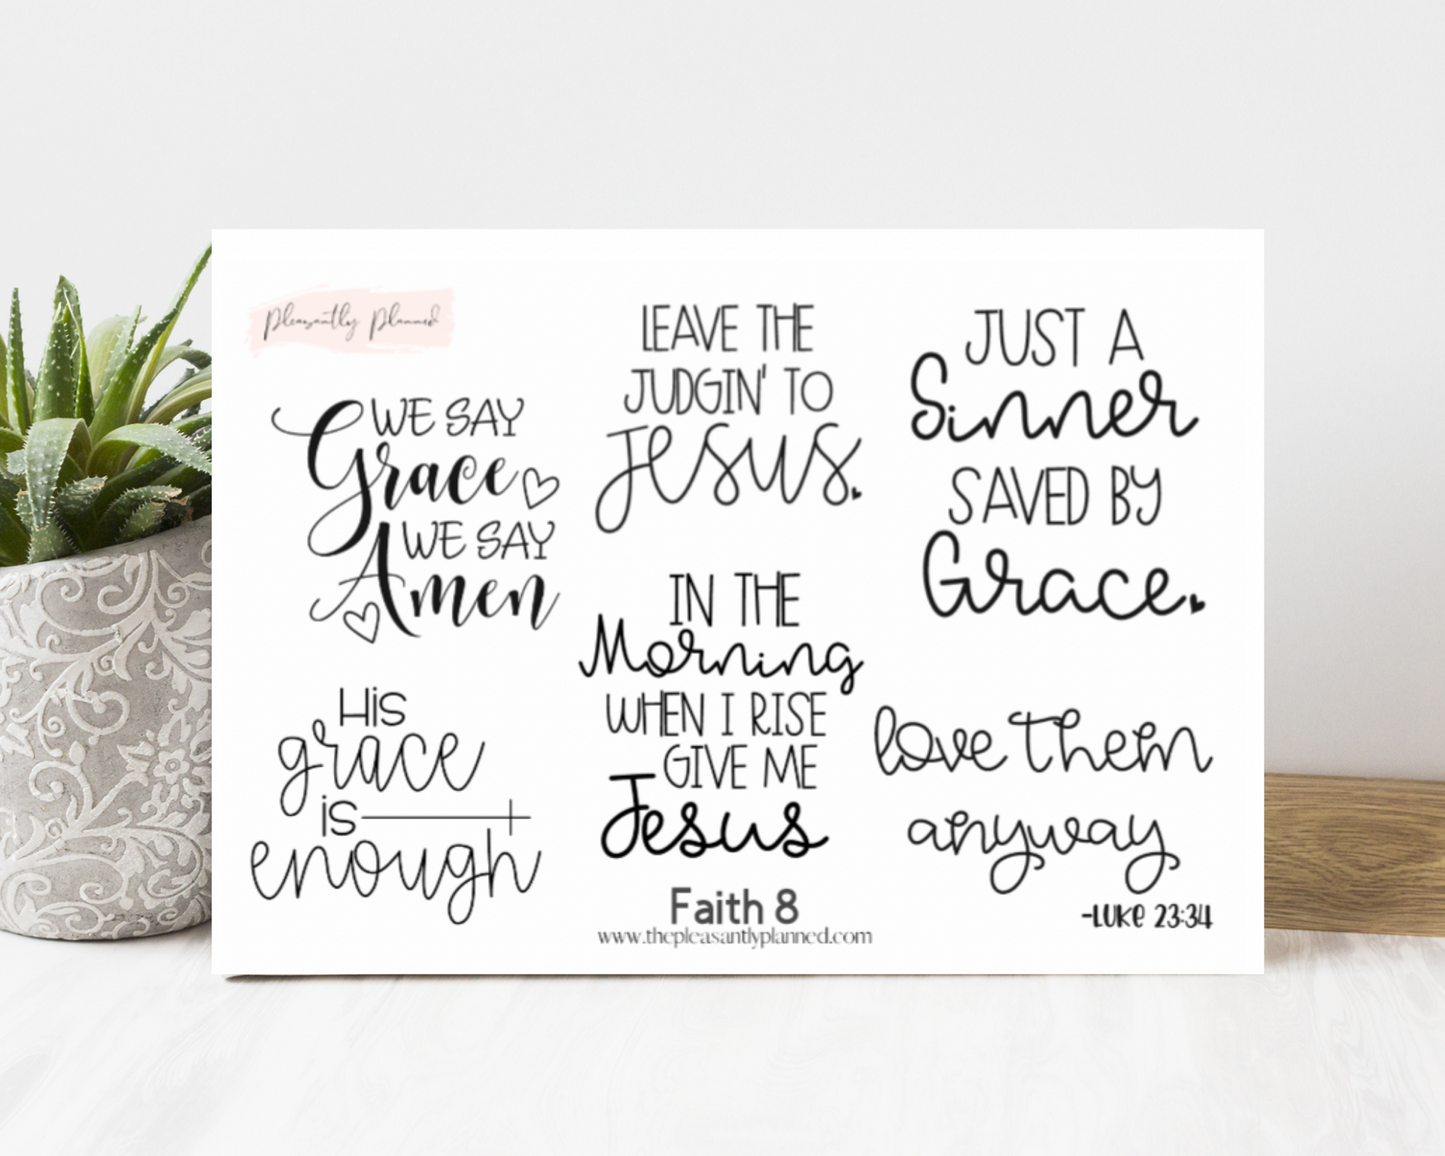 Pleasantly Planned
WE SAY
Grace
WE SAY
Amen
His
grace
is
enough
LEAVE THE
JUDGIN' TO
Jesus.
IN THE
Morning
WHEN I RISE
GIVE ME
Jesus
Faith 8
www.thepleasantlyplanned.com
JUST A
Sinner
SAVED BY
Grace.
love them
anyway
-LUKE 23:34